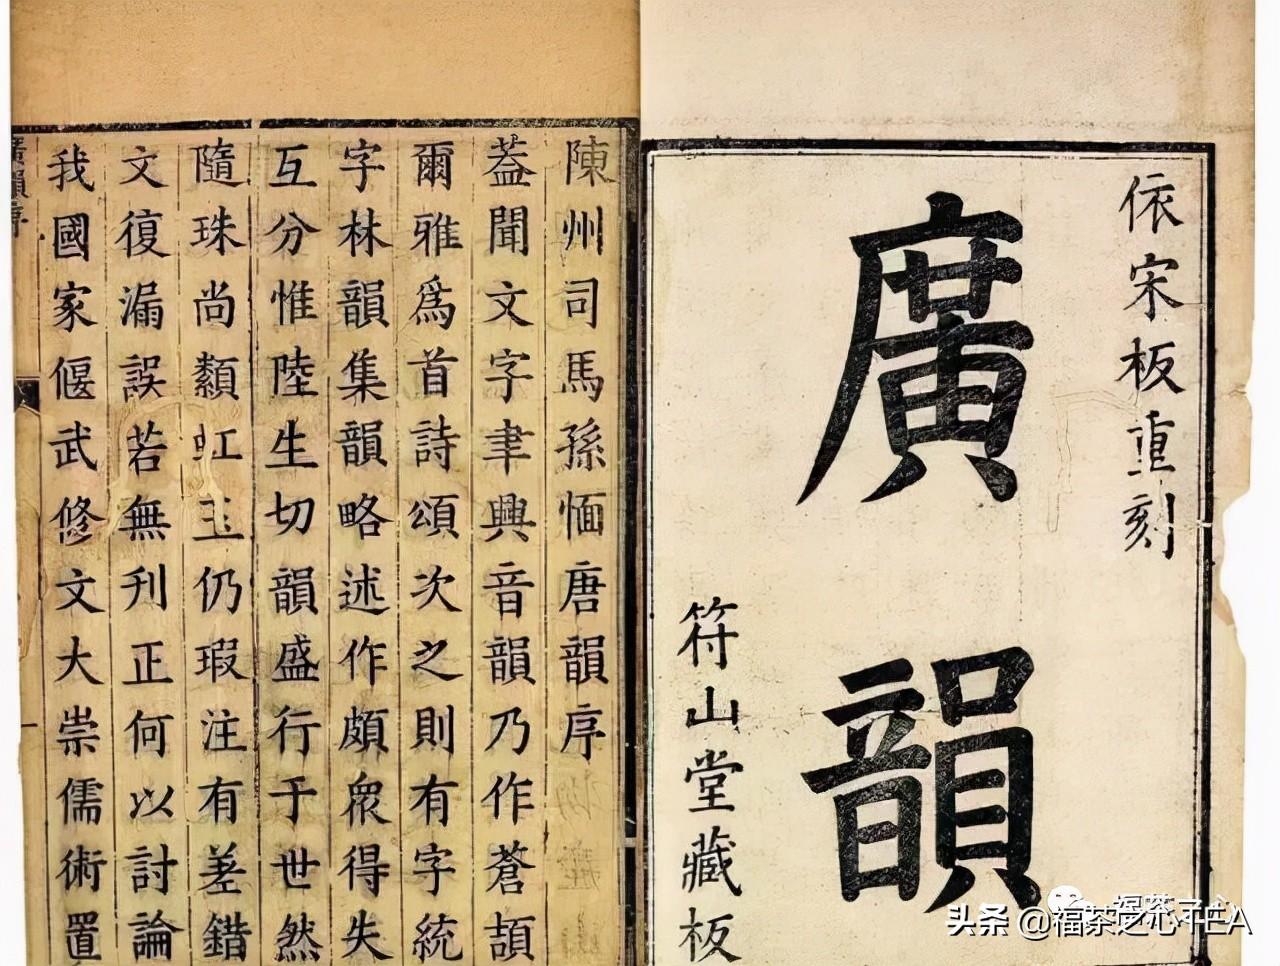 依宋板重刻
廣韻
符山堂藏板
陳州司馬孫愐唐韻序
蓋聞文字聿興音韻乃作蒼頡
爾雅爲首詩頌次之則有字統
字林韻集韻略述作頗衆得失
互分惟陸生切韻盛行于世然
隨珠尚纇虹玉仍瑕注有差錯
文復漏誤若無刊正何以討論
我國家偃武修文大崇儒術置
廣韻序
福茶之心
头条 @福茶之心TEA